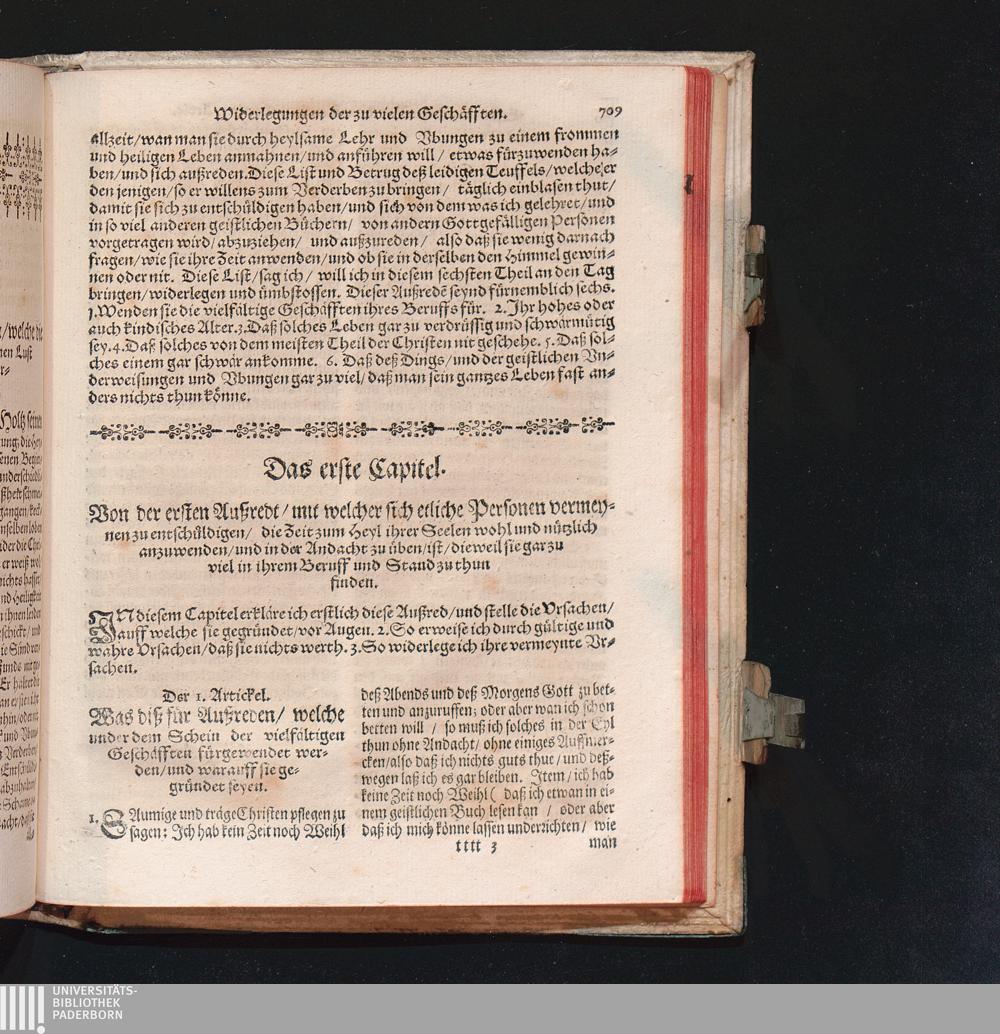 Widerlegungen der zu vielen Geschäfften. 709
allzeit/wan man sie durch heylsame Lehr und Vbungen zu einem frommen
und heiligen Leben anmahnen/und anführen will/ etwas fürzuwenden ha-
ben/und sich außreden. Diese List und Betrug deß leidigen Teuffels/welche er
den jenigen/so er willens zum Verderben zu bringen/ täglich einblasen thut/
damit sie sich zu entschüldigen haben/und sich von dem was ich gelehret/und
in so viel anderen geistlichen Büchern/ von andern Gottgefälligen Personen
vorgetragen wird/abzuziehen/ und außzureden/ also daß sie wenig darnach
fragen/wie sie ihre Zeit anwenden/und ob sie in derselben den Himmel gewin-
nen oder nit. Diese List/sag ich/ will ich in diesem sechsten Theil an den Tag
bringen/widerlegen und ümbstossen. Dieser Außredē seynd fürnemblich sechs.
1. Wenden sie die vielfältige Geschäfften ihres Beruffs für. 2. Ihr hohes oder
auch kindisches Alter. 3. Daß solches Leben gar zu verdrüssig und schwärmütig
sey. 4. Daß solches von dem meisten Theil der Christen nit geschehe. 5. Daß sol-
ches einem gar schwär ankomme. 6. Daß deß Dings/und der geistlichen Vn-
derweisungen und Vbungen gar zu viel/daß man sein gantzes Leben fast an-
ders nichts thun könne.
Das erste Capitel.
Von der ersten Außredt/mit welcher sich etliche Personen vermey-
nen zu entschüldigen/ die Zeit zum Heyl ihrer Seelen wohl und nützlich
anzuwenden/und in der Andacht zu üben/ist/dieweil sie gar zu
viel in ihrem Beruff und Stand zu thun
finden.
IN diesem Capitel erkläre ich erstlich diese Außred/und stelle die Vrsachen/
auff welche sie gegründet/vor Augen. 2. So erweise ich durch gültige und
wahre Vrsachen/daß sie nichts werth. 3. So widerlege ich ihre vermeynte Vr-
sachen.
Der 1. Artickel.
Was diß für Außreden/ welche
under dem Schein der vielfältigen
Geschäfften fürgewendet wer-
den/und warauff sie ge-
gründet seyen.
1. SAumige und träge Christen pflegen zu
sagen: Ich hab kein Zeit noch Weihl
deß Abends und deß Morgens Gott zu bet-
ten und anzuruffen; oder aber wan ich schon
betten will/ so muß ich solches in der Eyl
thun ohne Andacht/ohne einiges Auffmer-
cken/also daß ich nichts guts thue/und deß-
wegen laß ich es gar bleiben. Item/ich hab
keine Zeit noch Weihl( daß ich etwan in ei-
nem geistlichen Buch lesen kan/ oder aber
daß ich mich könne lassen underrichten/ wie
tttt 3 man
UNIVERSITÄTS-
BIBLIOTHEK
PADERBORN